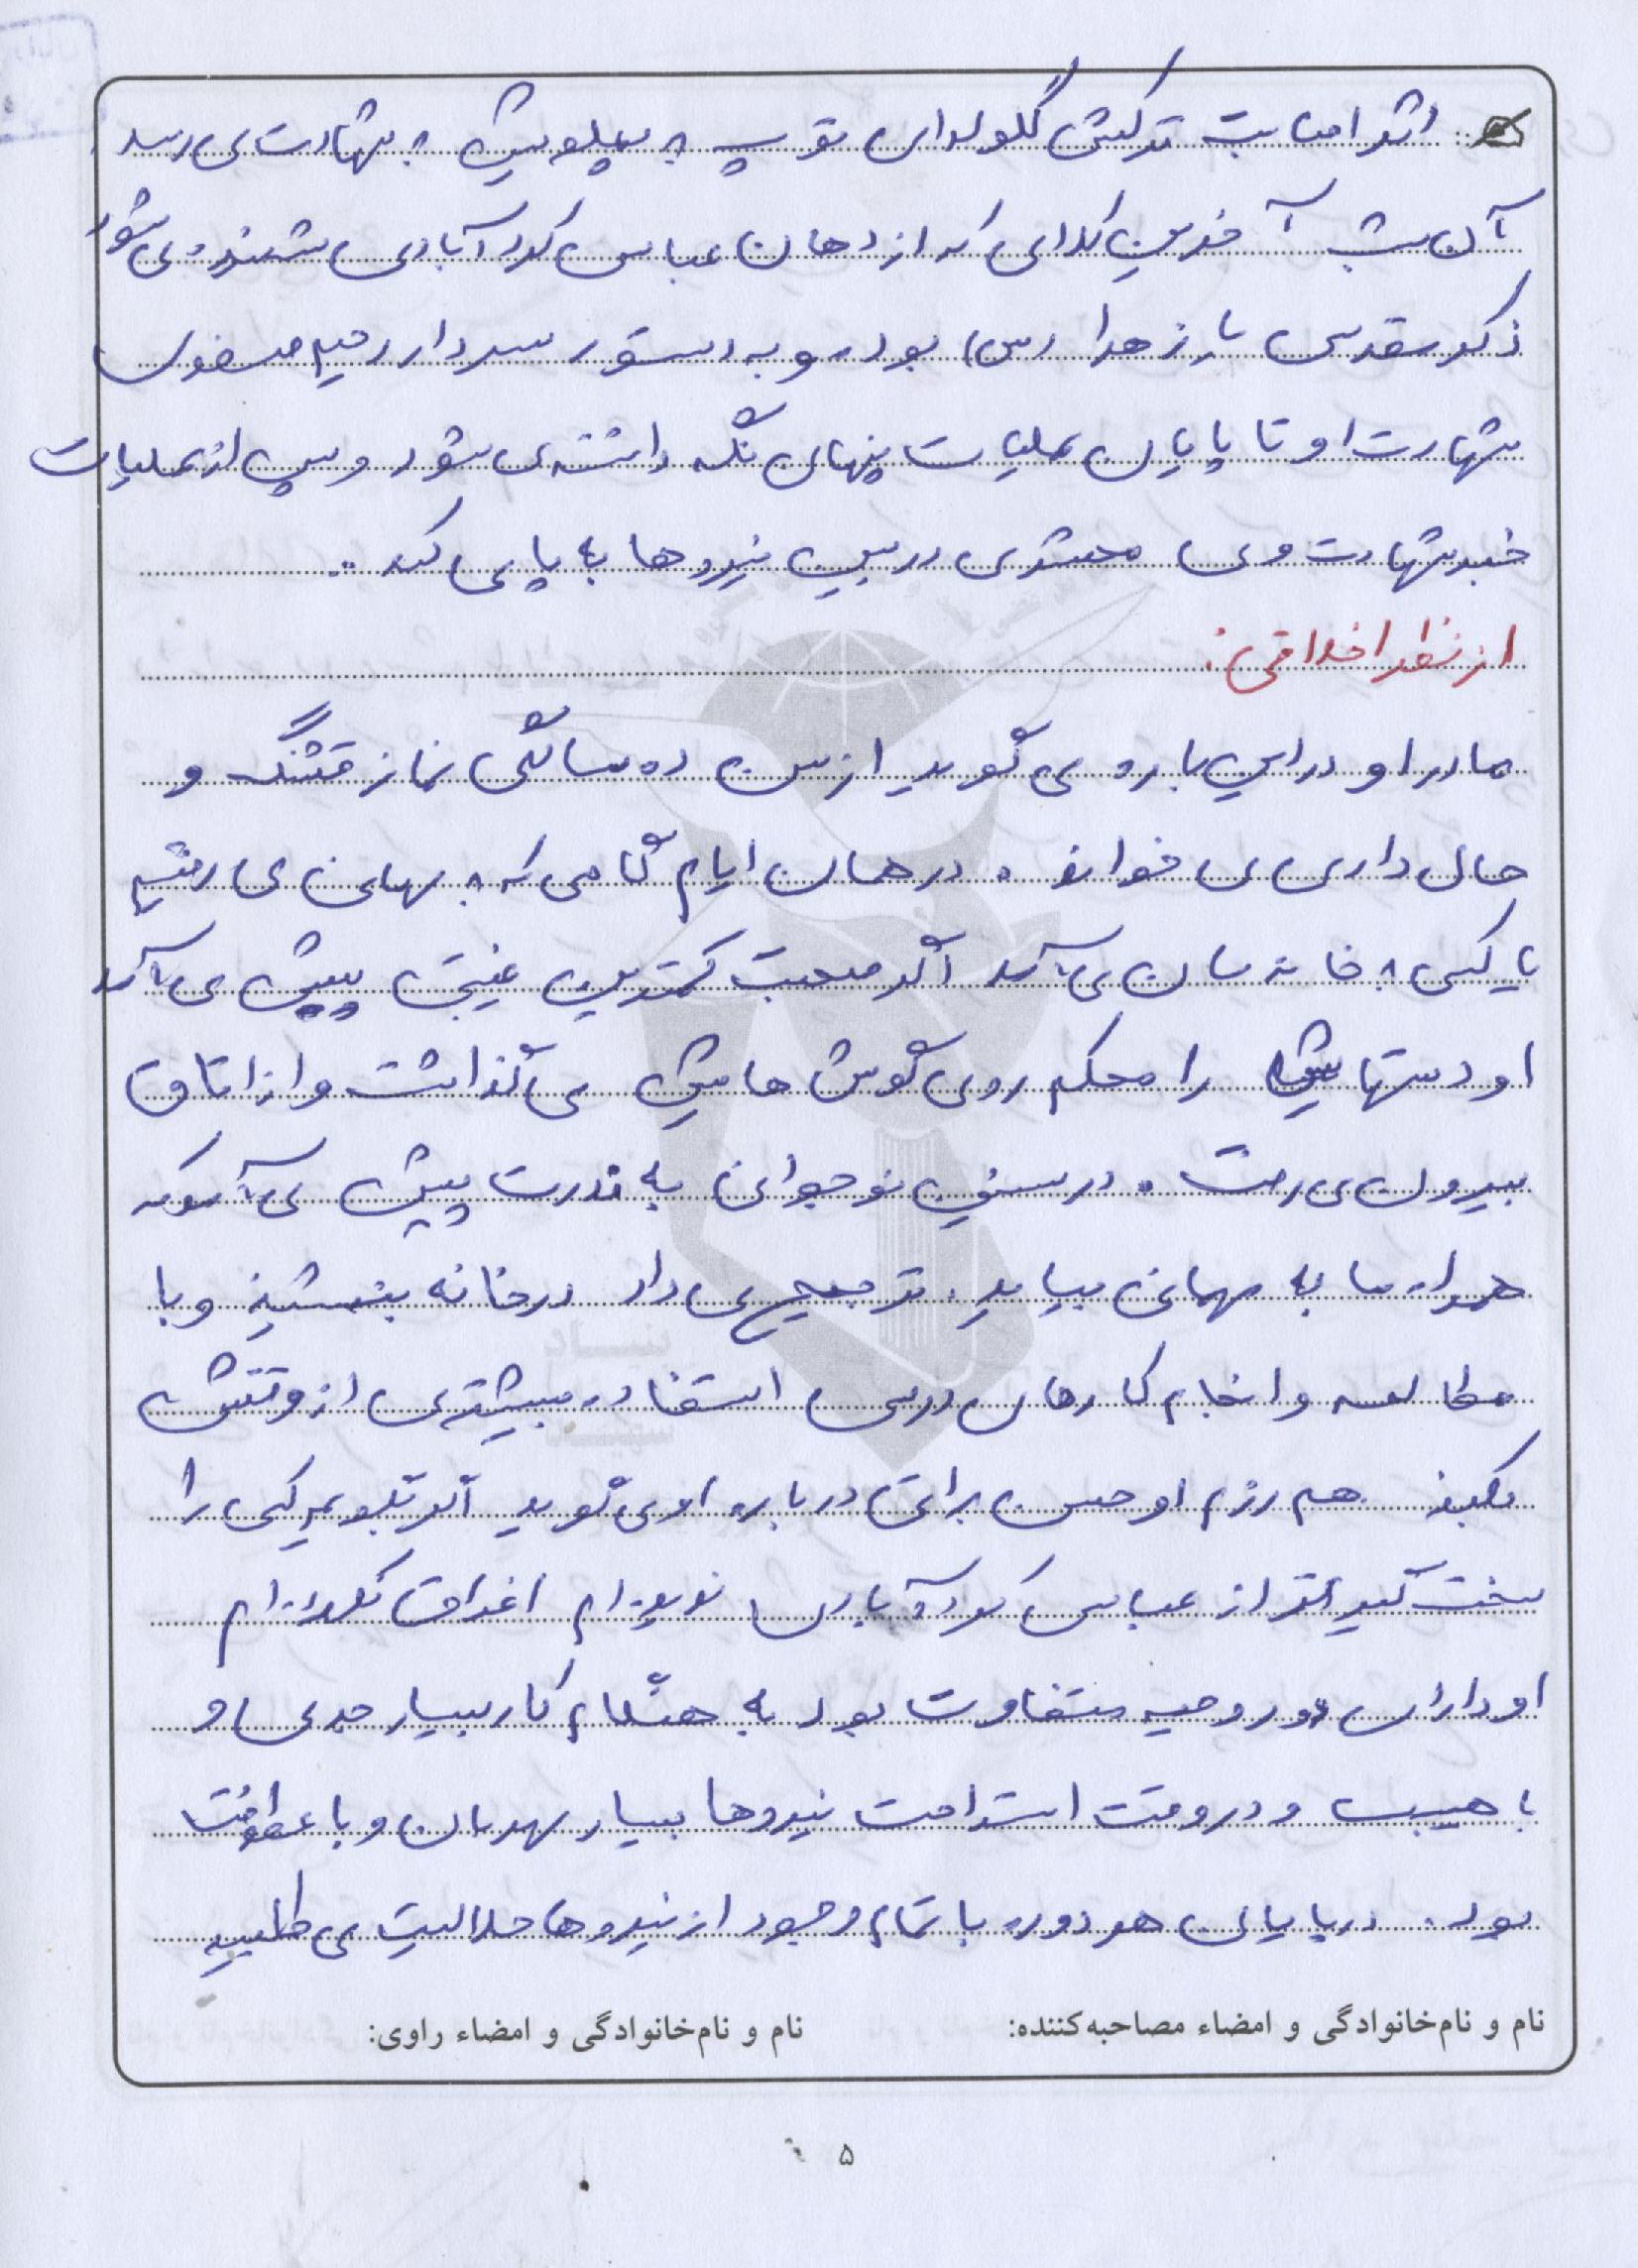 اثر اصابت ترکش گلوله‌ای توپ به پهلویش به شهادت می رسد
آن شب آخرین کلامی که از دهان عباس کردآبادی شنیده می شود
ذکر مقدس یا زهرا (س) بود. و به دستور سردار رحیم صفوی
شهادت او تا پایان عملیات پنهان نگه داشته می شود و پس از عملیات
خبر شهادت وی محشری در بین نیروها به پا می کند ..
از نظر اخلاقی:
مادر او در این باره می گوید از سن ده سالگی نماز قشنگ و
حال داری می خواند. در همان ایام گاهی که به مهمانی می رفتیم
یا کسی به خانه مان می آمد اگر صحبت کمترین غیبتی پیش می آمد
او دستهایش را محکم روی گوش هایش می گذاشت و از اتاق
بیرون می رفت. در سنین نوجوانی به ندرت پیش می آمد که
همراه ما به مهمانی بیاید. ترجیح می داد در خانه بنشیند و با
مطالعه و انجام کارهای درسی استفاده بیشتری از وقتش
بکند. هم رزم او حسن براتی درباره او می گوید اگر بگویم کسی را
سخت گیرتر از عباس کردآبادی ندیده ام اغراق نکرده ام
او دارای دو روحیه متفاوت بود به هنگام کار بسیار جدی و
با هیبت و در وقت استراحت نیروها بسیار مهربان و با عطوفت
بود. در پایان هر دوره با تمام وجود از نیروها حلالیت می طلبید
نام و نام‌خانوادگی و امضاء مصاحبه‌کننده: نام و نام‌خانوادگی و امضاء راوی:
۵